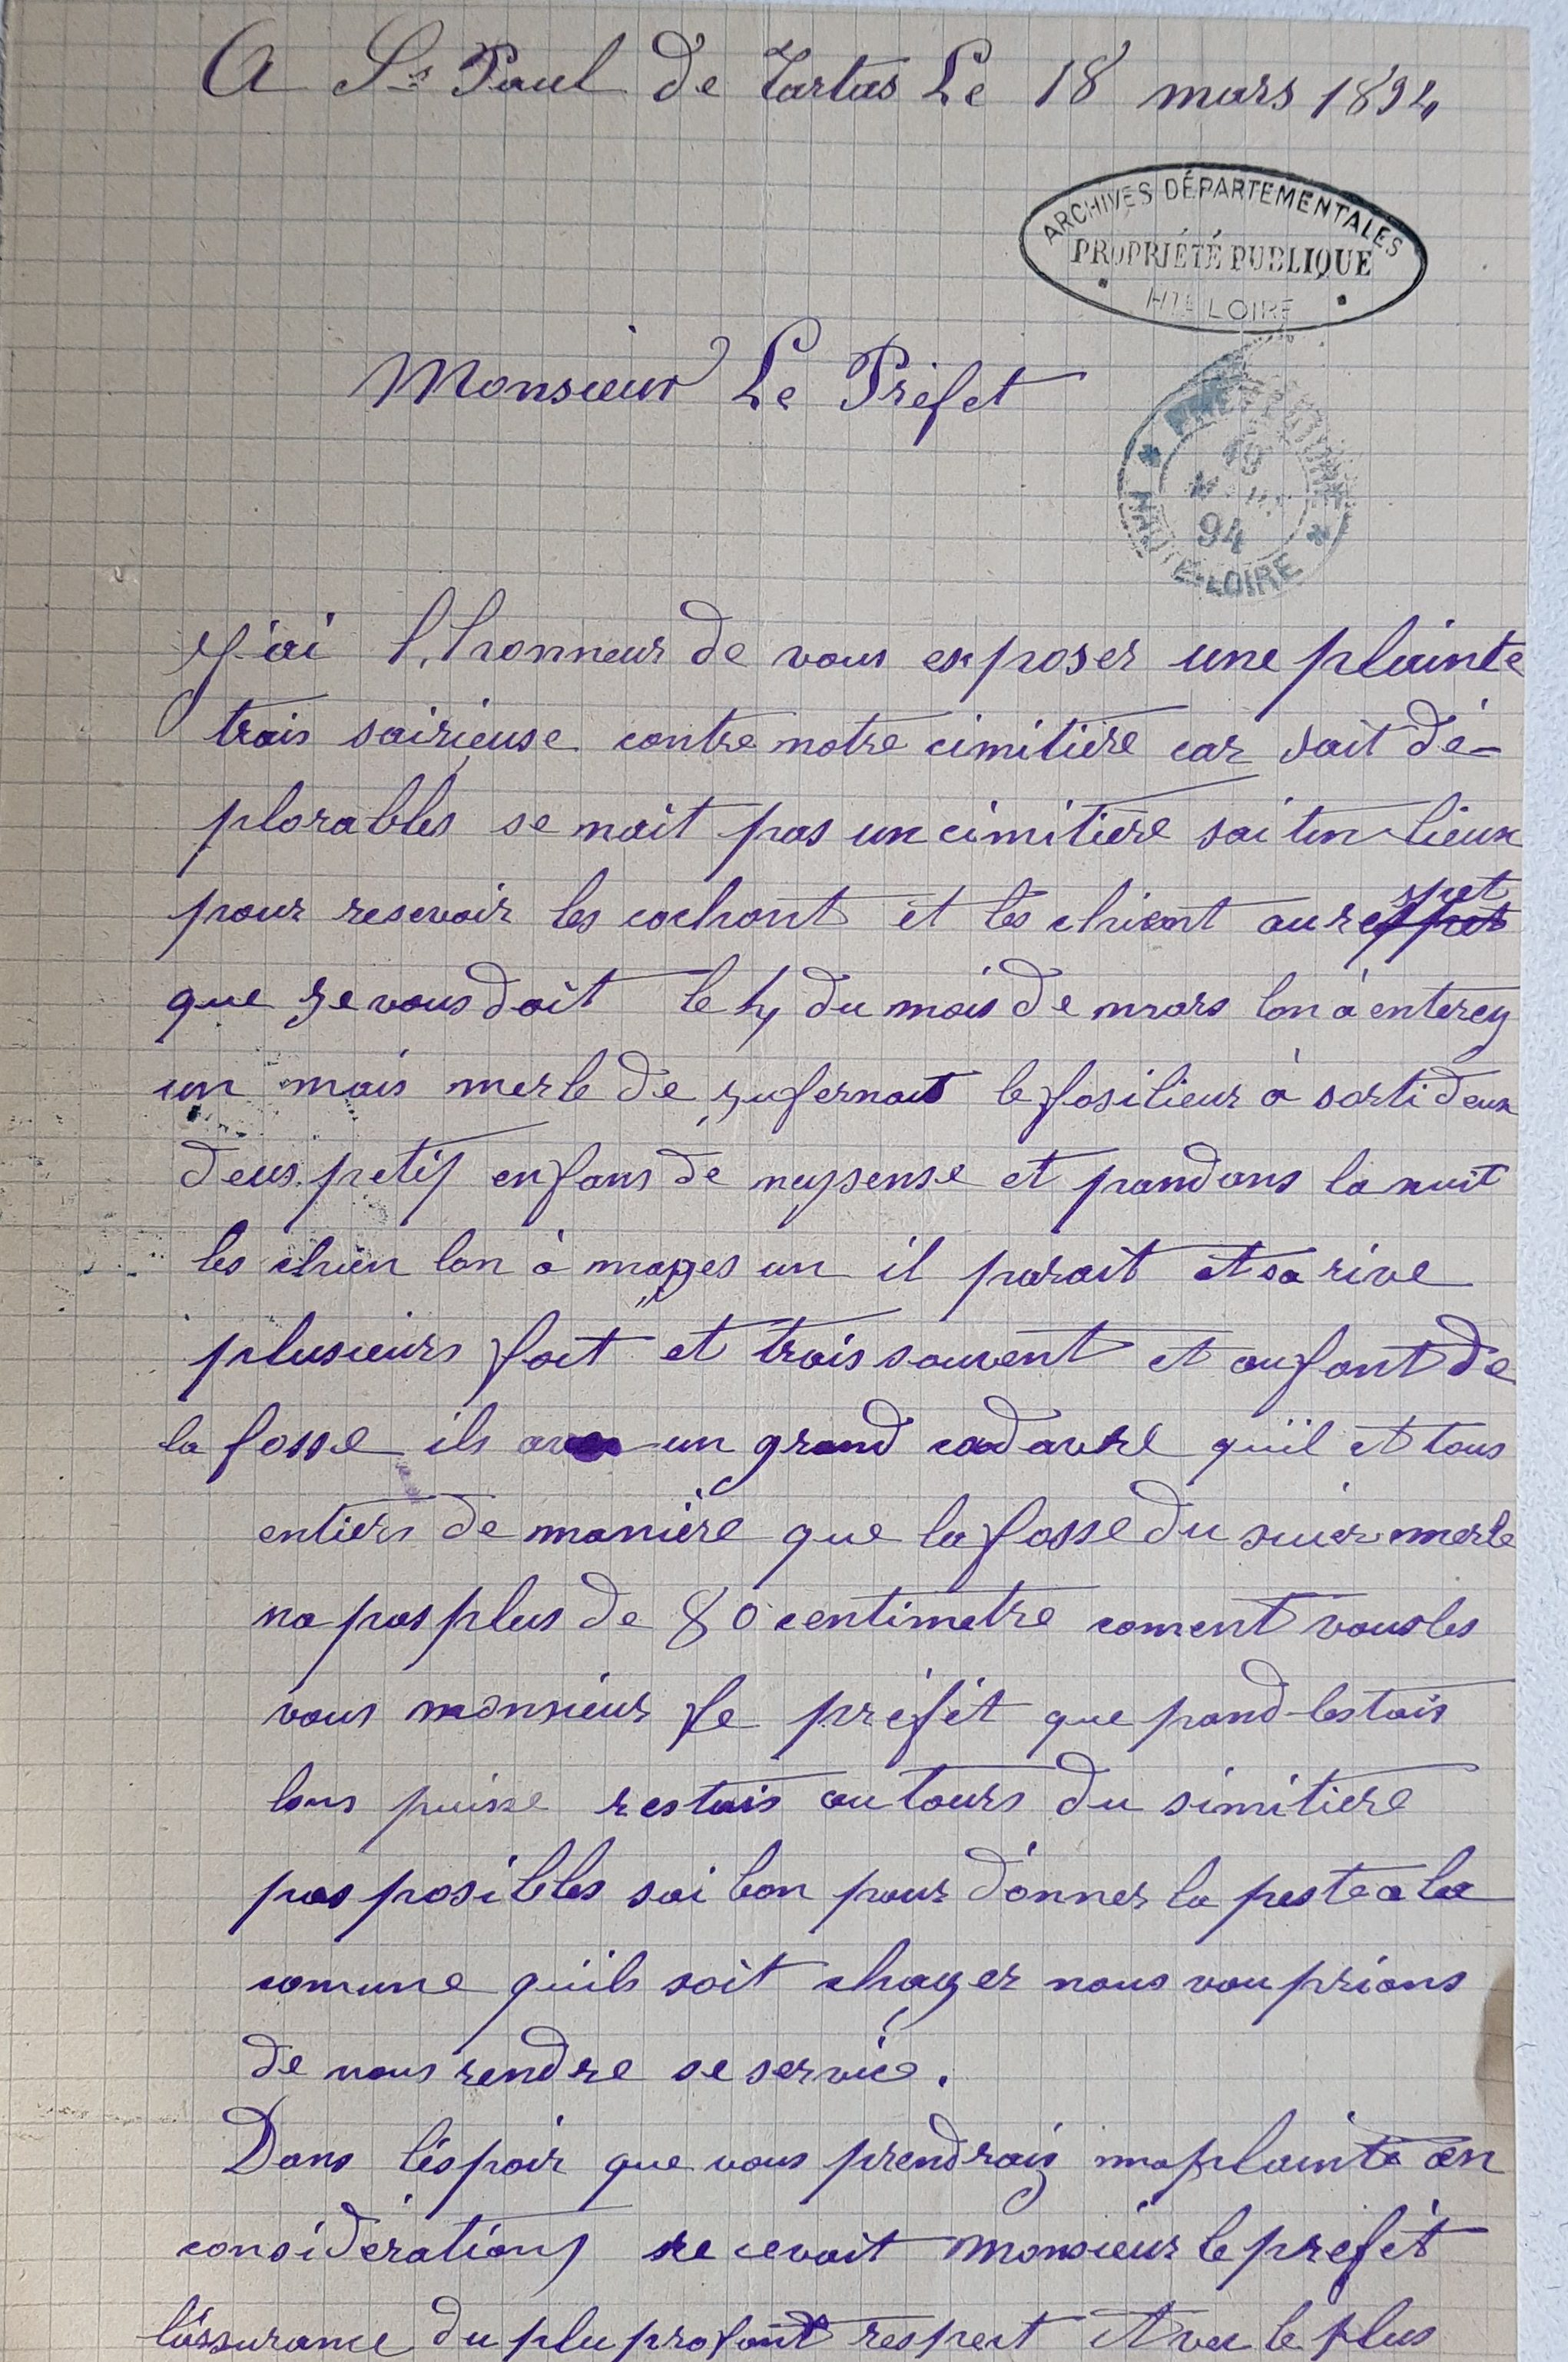 A St Paul de Tartas Le 18 mars 1894
ARCHIVES DÉPARTEMENTALES
PROPRIÉTÉ PUBLIQUE
HTE LOIRE
Monsieur Le Préfet
19
MARS
94
HAUTE-LOIRE
J'ai l'honneur de vous exposer une plainte
trais sairieuse contre notre cimitière car sait dé-
plorables se nait pas un cimitière sai tun lieux
pour resevoir les cochont et les chient au respet
que je vous doit le 4 du mois de mars lon à enterey
un mais merle de le fosilieur à sorti deux
deus petis enfans de et pandans la nuit
les chien lon à mages un il parait et sa rive
plusieurs foit et trais souvent et au font de
la fosse ils un grand cadavre quil et tous
entiers de manière que la fosse du merle
na pas plus de 80 centimetre coment voules
vous monsieur le préfét que pand les tais
lons puisse restais au tours du simitiere
pas posibles sai bon pour donner la peste a la
comune quils soit chager nous vou prions
de nous rendre se service.
Dans l'éspoir que vous prendrais ma plainte en
considérations recevait Monsieur le préfét
l'assurance du plu profont respect et vee le plus